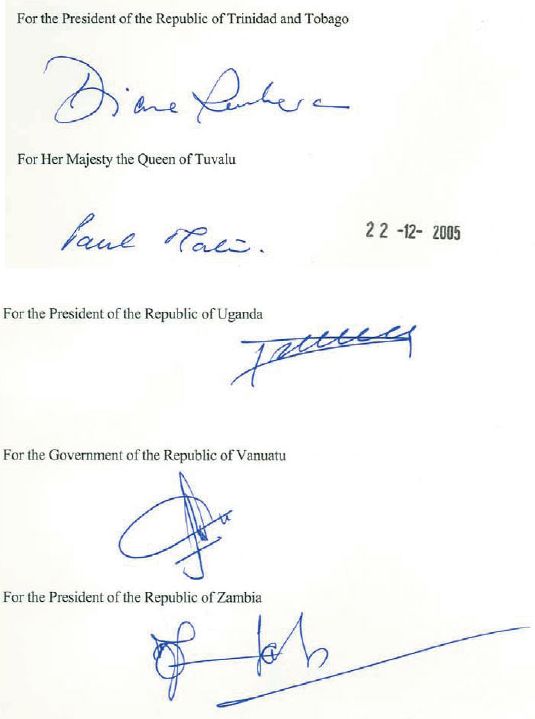 For the President of the Republic of Trinidad and Tobago
Diane
For Her Majesty the Queen of Tuvalu
Paul
22 -12- 2005
For the President of the Republic of Uganda
For the Government of the Republic of Vanuatu
For the President of the Republic of Zambia